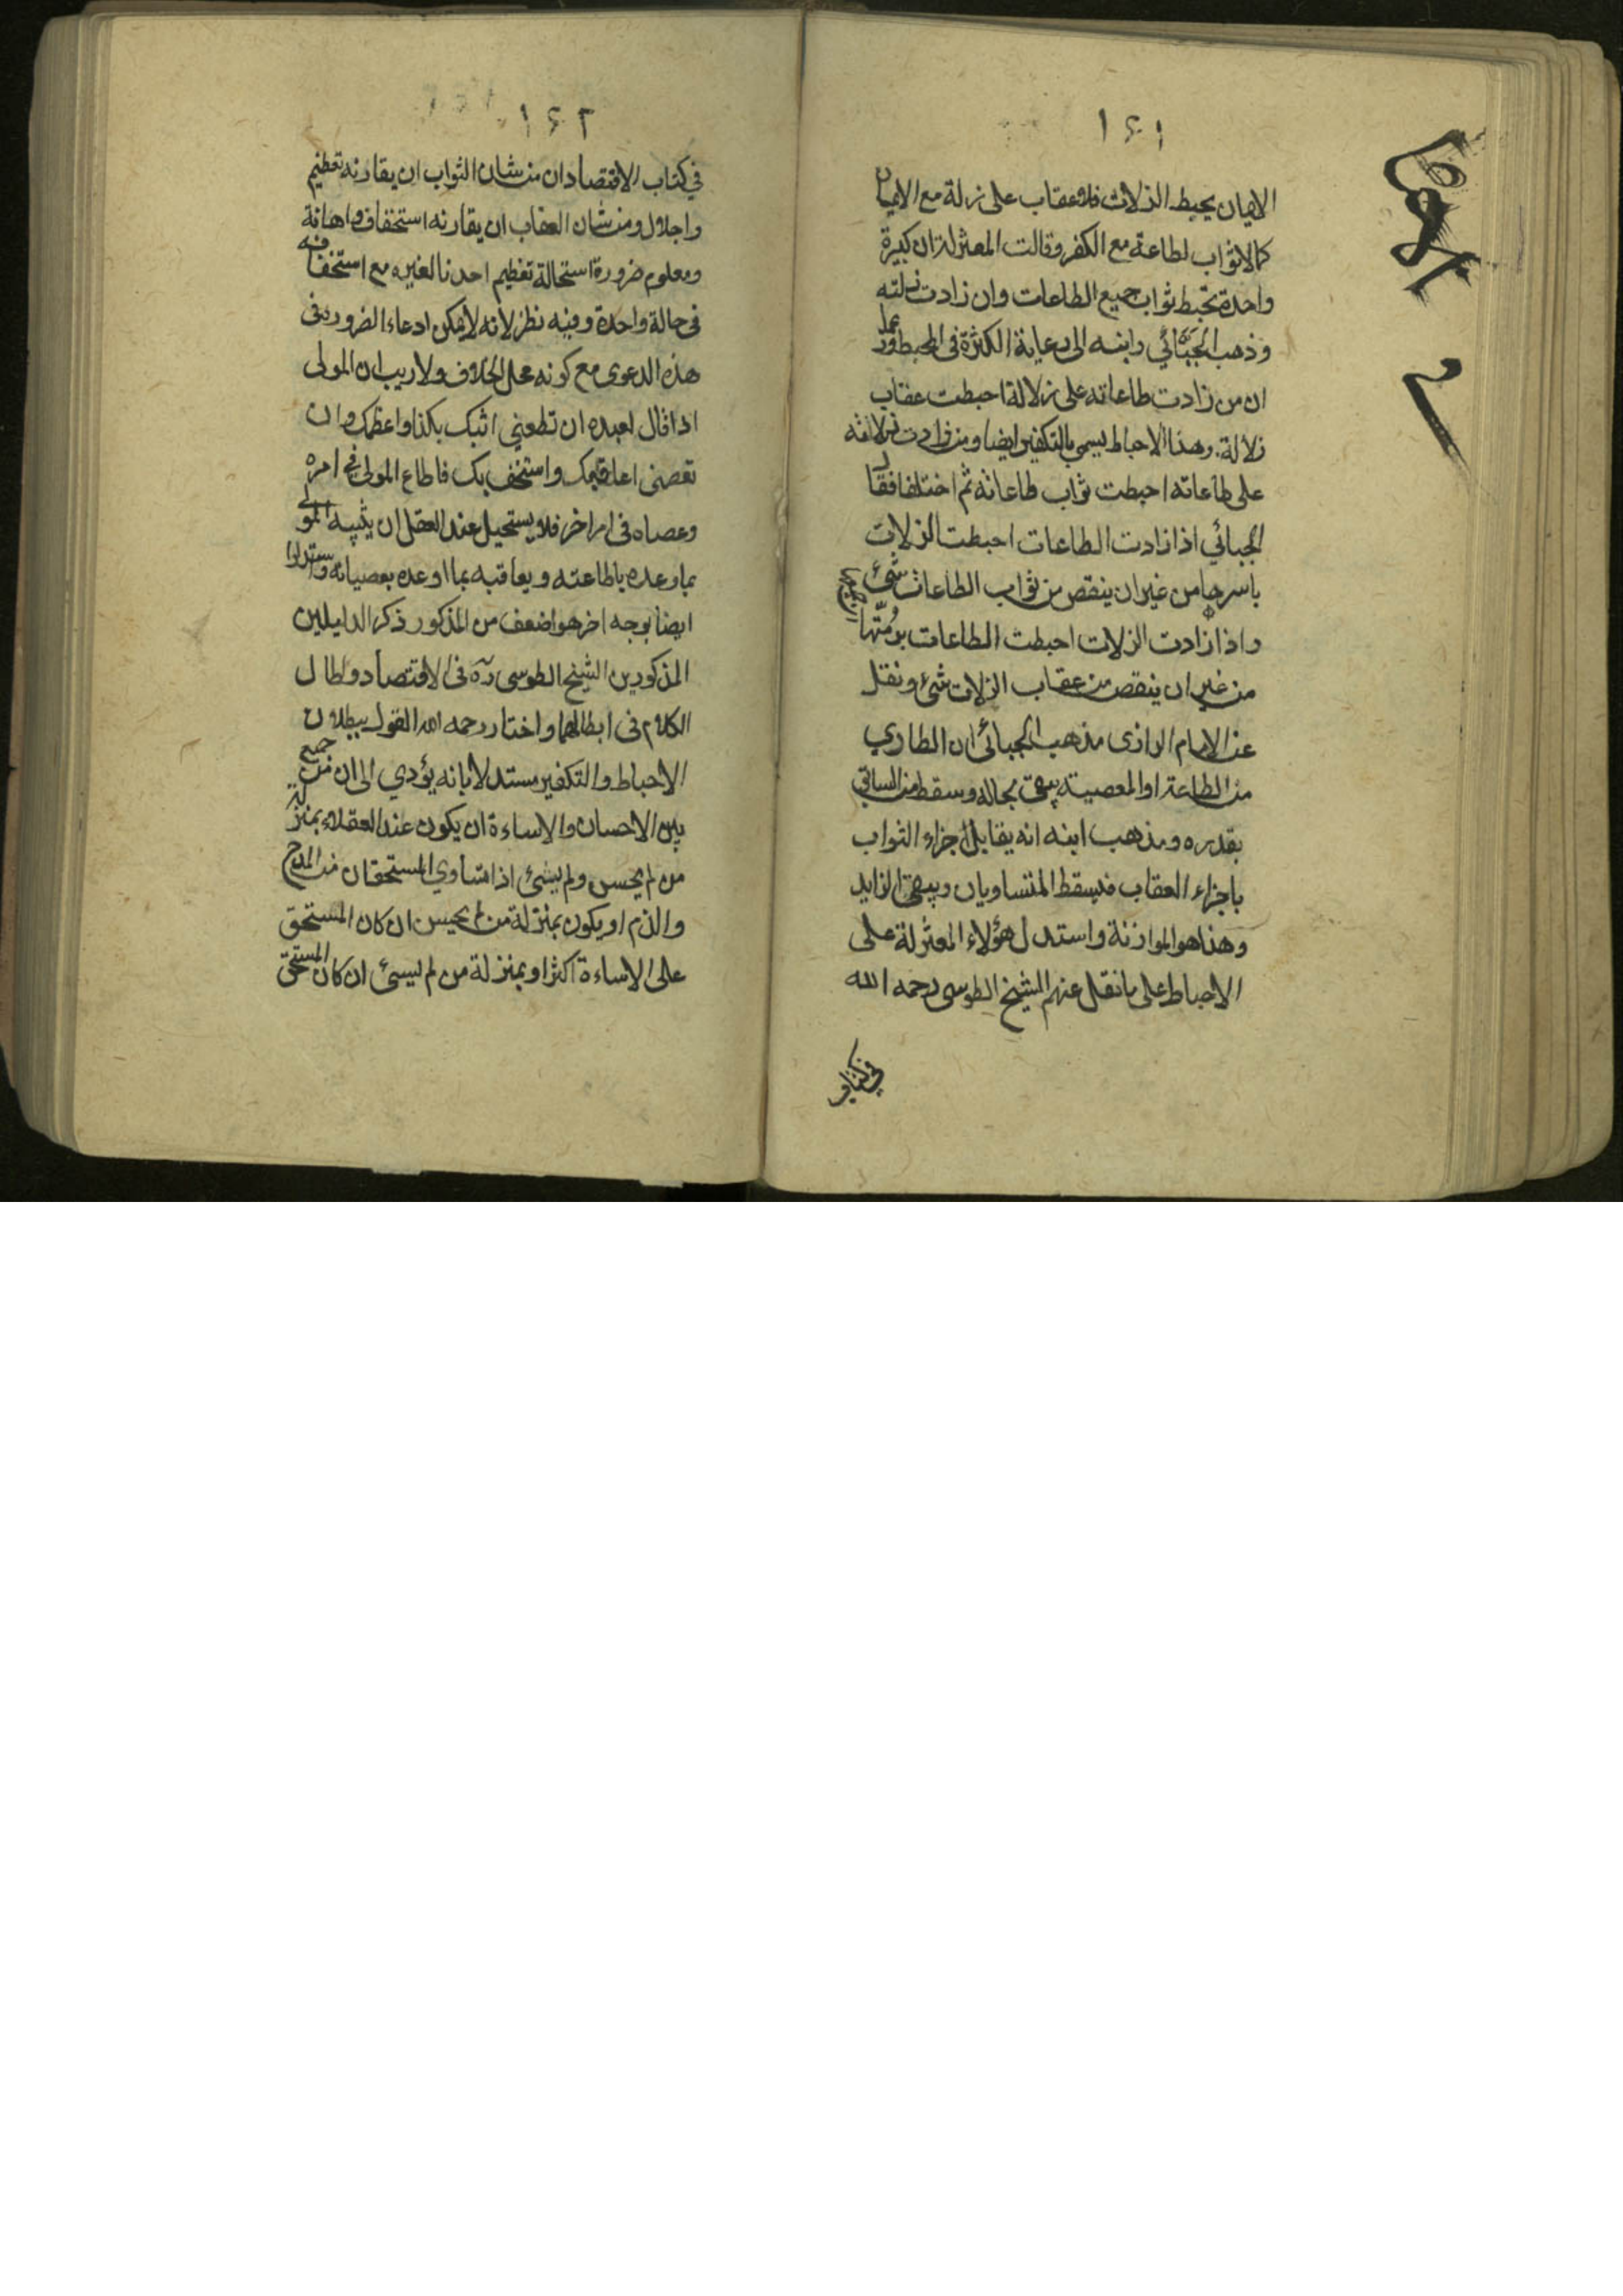 ١٤١
الايمان يحبط الزلات فلا عقاب على زلة مع الايمان
كما لا ثواب لطاعة مع الكفر وقالت المعتزلة ان كبيرة
واحدة تحبط ثواب جميع الطاعات وان زادت زلته
وذهب الجبائي وابنه الى رعاية الكثرة في المحبط وزعما
ان من زادت طاعاته على زلالة احبطت عقاب
زلالة وهذا الاحباط يسمى بالتكفير ايضا ومن زادت زلاته
على طاعاته احبطت ثواب طاعاته ثم اختلفا فقال
الجبائي اذا زادت الطاعات احبطت الزلات
باسرها من غير ان ينقص من ثواب الطاعات شئ
واذا زادت الزلات احبطت الطاعات برمّتها
من غير ان ينقص من عقاب الزلات شئ ونقل
عن الامام الرازى مذهب الجبائى ان الطاري
من الطاعة او المعصية يبقى بحاله وسقط من السابق
بقدره ومذهب ابنه انه يقابل اجزاء الثواب
باجزاء العقاب فيسقط المتساويان ويبقى الزايد
وهذا هو الموازنة واستدل هؤلاء المعتزلة على
الاحباط على ما نقل عنهم الشيخ الطوسى رحمه الله
في كتاب
١٤٢
في كتاب الاقتصاد ان من شان الثواب ان يقارنه تعظيم
واجلال ومن شان العقاب ان يقارنه استخفاف واهانة
ومعلوم ضرورة استحالة تعظيم احدنا لغيره مع استخفافه
فى حالة واحدة وفيه نظر لانه لا يمكن ادعاء الضرورة فى
هذه الدعوى مع كونه محل الخلاف ولا ريب ان المولى
اذا قال لعبده ان تطعنى اثبك بكذا واعظمك وان
تعصنى اعاقبك واستخف بك فاطاع المولى في امره
وعصاه فى امر اخر فلا يستحيل عند العقل ان يثيبه المولى
بما وعده باطاعته ويعاقبه بما اوعده بعصيانه واستدلوا
ايضا بوجه اخر هو اضعف من المذكور ذكر الدليلين
المذكورين الشيخ الطوسى ره فى الاقتصاد واطال
الكلام فى ابطالهما واختار رحمه الله القول ببطلان
الاحباط والتكفير مستدلا بانه يؤدي الى ان من جمع
بين الاحسان والاساءة ان يكون عند العقلاء بمنزلة
من لم يحسن ولم يسئ اذا تساوي المستحقان من المدح
والذم او يكون بمنزلة من لم يحسن ان كان المستحق
على الاساءة اكثر او بمنزلة من لم يسئ ان كان المستحق